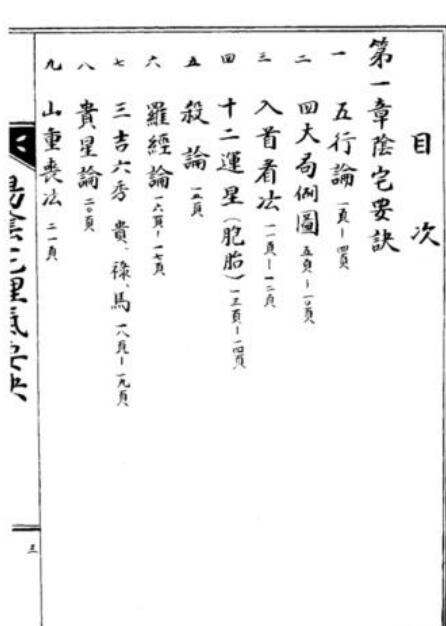 目次
第一章陰宅要訣
一 五行論 一頁-四頁
二 四大局例圖 五頁-一〇頁
三 入首看法 一一頁-一二頁
四 十二運星(胞胎) 一三頁-一四頁
五 殺論 一五頁
六 羅經論 一六頁-一七頁
七 三吉六秀 貴、祿、馬 一八頁-一九頁
八 貴星論 二〇頁
九 山重喪法 二一頁
三